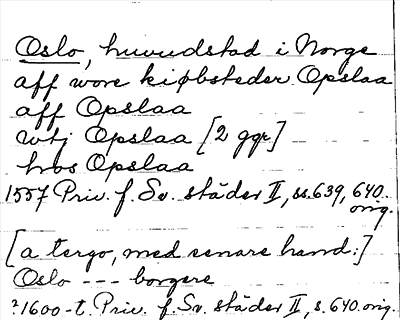 Oslo, huvudstad i Norge
aff wore kiøbsteder Opslaa
aff Opslaa
wtj Opslaa [2 ggr]
hos Opslaa
1557 Priv. f. Sv. städer II, ss. 639, 640
orig.
[a tergo, med senare hand:]
Oslo --- borgere
?1600-t. Priv. f. Sv. städer II, s. 640. orig.